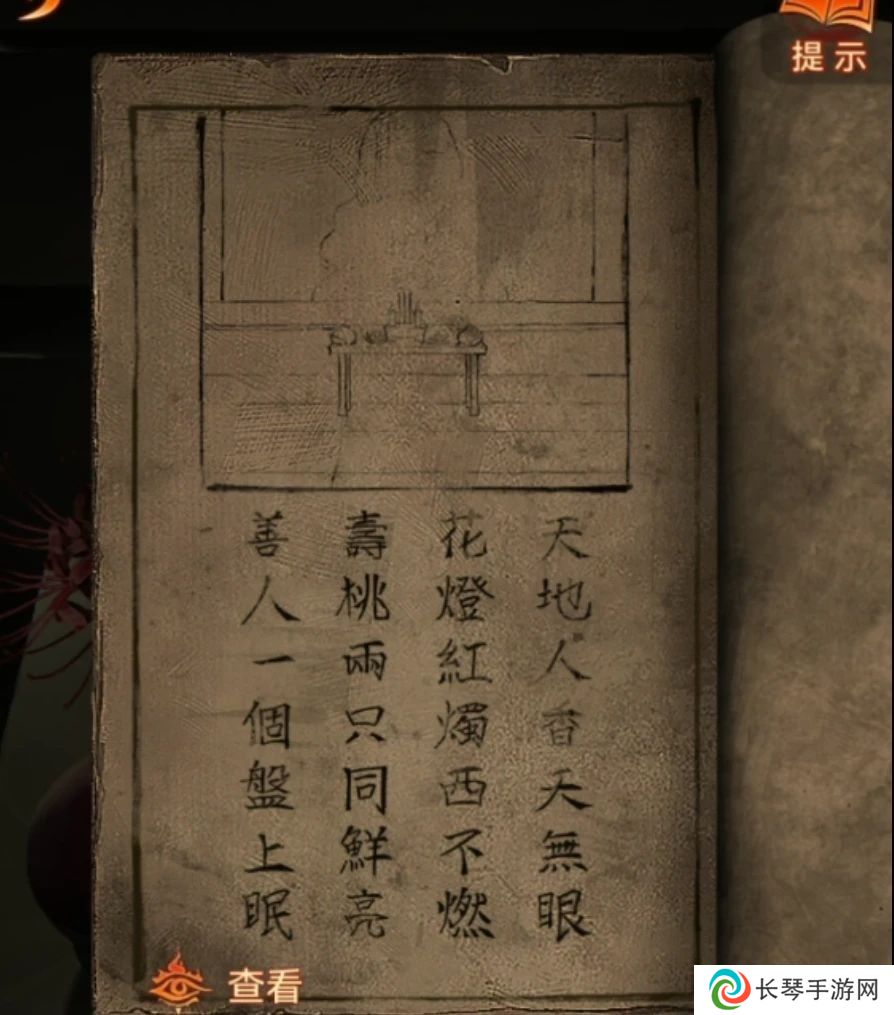 提示
天地人香天無眼
花燈紅燭西不燃
壽桃兩只同鮮亮
善人一個盤上眠
查看
长琴手游网